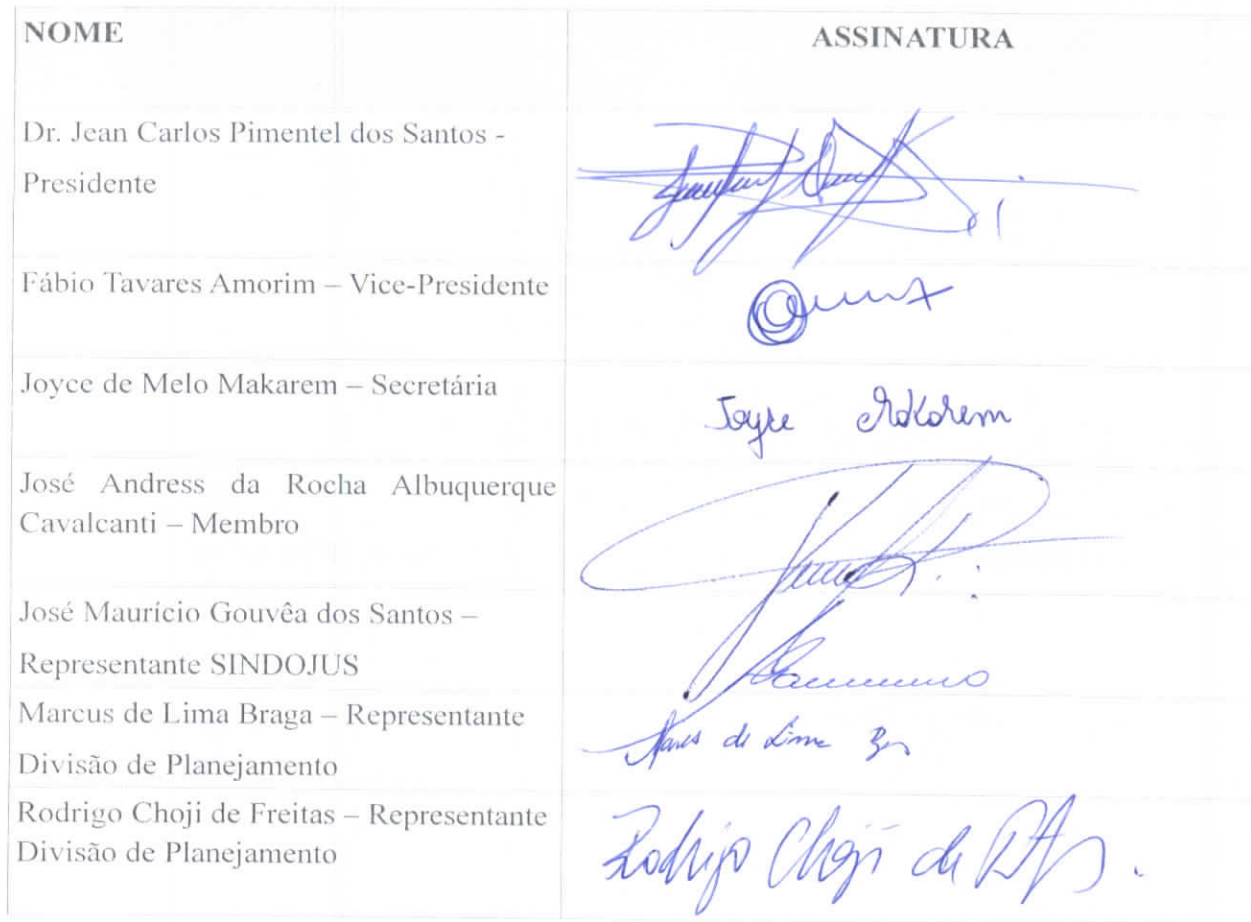 NOME ASSINATURA
Dr. Jean Carlos Pimentel dos Santos -
Presidente
Fábio Tavares Amorim – Vice-Presidente
Joyce de Melo Makarem – Secretária
Joyce Makarem
José Andress da Rocha Albuquerque
Cavalcanti – Membro
José Maurício Gouvêa dos Santos –
Representante SINDOJUS
Marcus de Lima Braga – Representante
de Lima
Divisão de Planejamento
Rodrigo Choji de Freitas – Representante
Divisão de Planejamento
Rodrigo Choji de